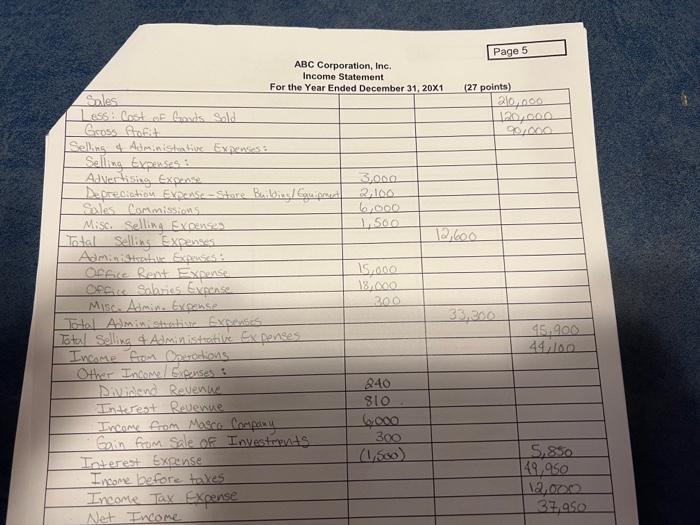 Page 5
ABC Corporation, Inc.
Income Statement
For the Year Ended December 31, 20X1 (27 points)
Sales 210,000
Less: Cost of Goods Sold 120,000
Gross Profit 90,000
Selling & Administrative Expenses:
Selling Expenses:
Advertising Expense 3,000
Depreciation Expense - Store Building/Equipment 2,100
Sales Commissions 6,000
Misc. Selling Expenses 1,500
Total Selling Expenses 12,600
Administrative Expenses:
Office Rent Expense 15,000
Office Salaries Expense 18,000
Misc. Admin. Expense 300
Total Administrative Expenses 33,300
Total Selling & Administrative Expenses 45,900
Income from Operations 44,100
Other Income/Expenses:
Dividend Revenue 240
Interest Revenue 810
Income from Masco Company 6,000
Gain from Sale of Investments 300
Interest Expense (1,500) 5,850
Income before taxes 49,950
Income Tax Expense 12,000
Net Income 37,950